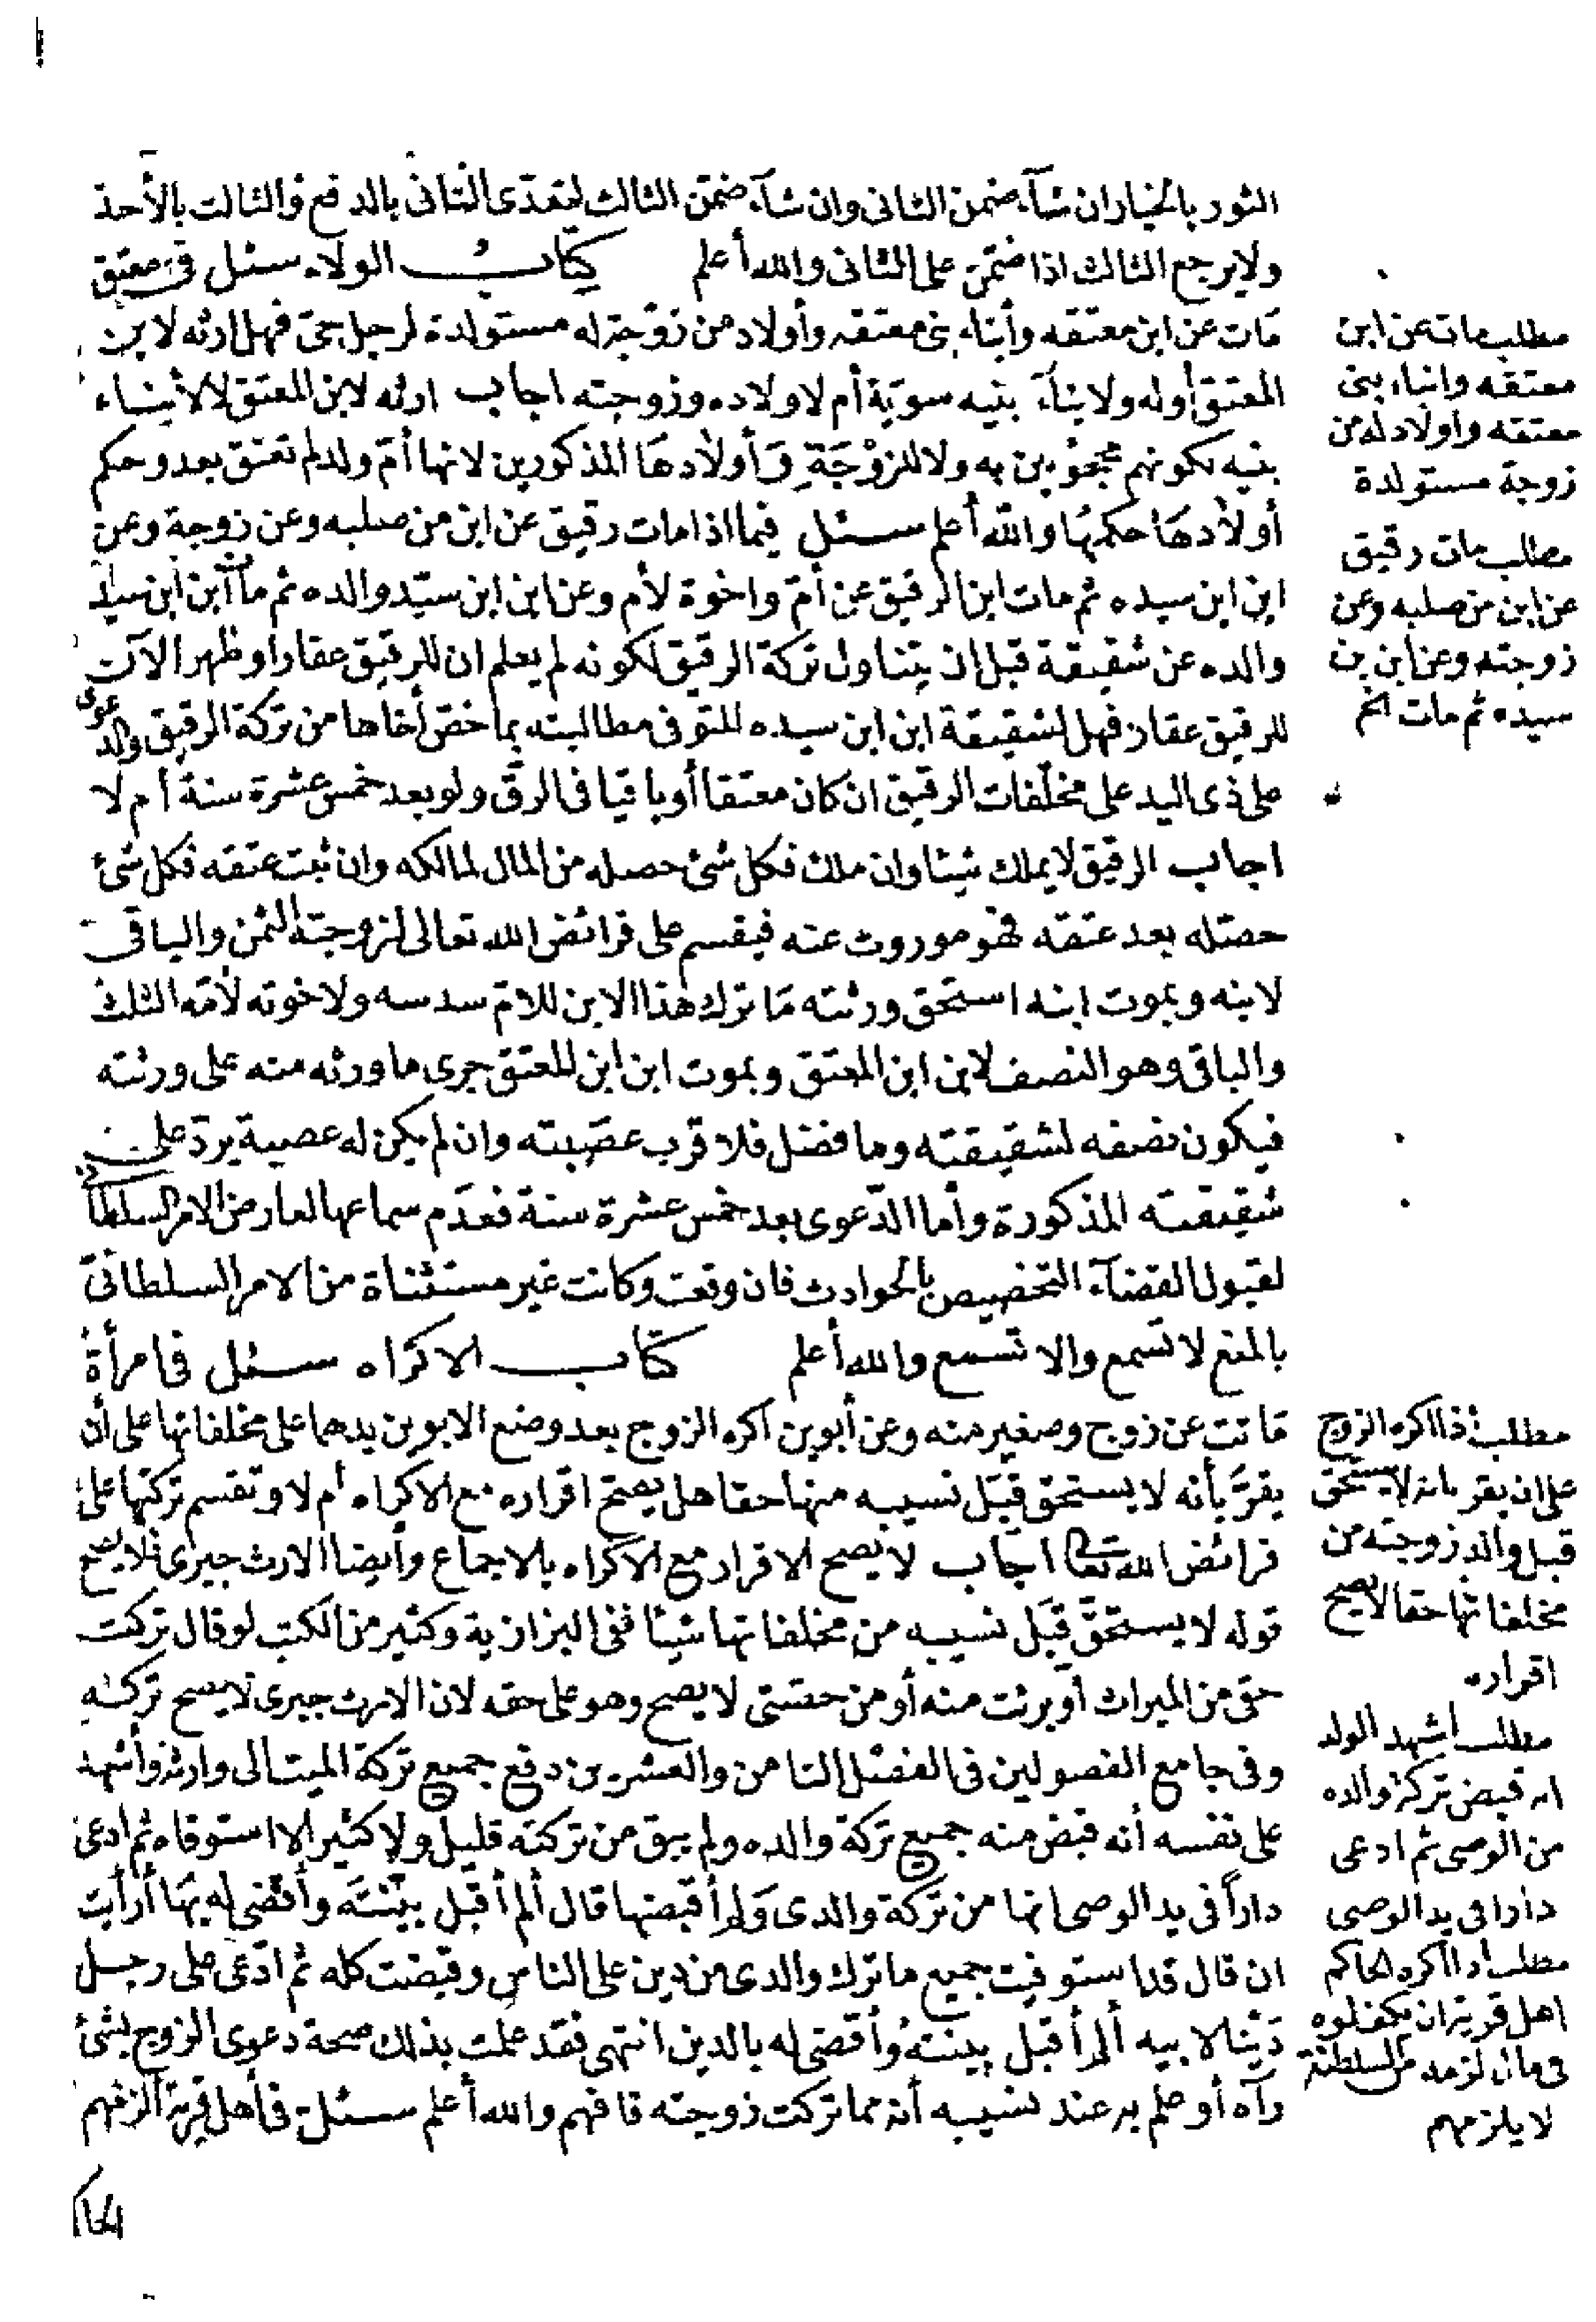 الثور بالخيار ان شآء ضمن الثانى وان شآء ضمن الثالث لتعدّى الثانى بالدفع والثالث بالأخذ
ولا يرجع الثالث اذا ضمن على الثانى والله أعلم كتاب الولاء سئل فى معتق
مات عن ابن معتقه وأبناء بنى معتقه وأولاد من زوجة له مستولدة لرجل حىّ فهل ارثه لابن
المعتق أوله ولابناء بنيه سويّة أم لاولاده وزوجته اجاب ارثه لابن المعتق لا لأبناء
بنيه لكونهم محجوبين به ولا للزوْجَةِ وَأولادهَا المذكورين لانها أمّ ولد لم تعتق بعد وحكم
أولادهَا حكمهَا والله أعلم سئل فيما اذا مات رقيق عن ابن من صلبه وعن زوجة وعن
ابن ابن سيده ثم مات ابن الرقيق عن أمّ واخوة لأم وعن ابن ابن سيّد والده ثم مات ابن ابن سيد
والده عن شقيقة قبل ان يتناول تركة الرقيق لكونه لم يعلم ان للرقيق عقارا وظهر الآن
للرقيق عقار فهل لشقيقة ابن ابن سيده المتوفى مطالبته بما خصّ أخاها من تركة الرقيق والدعوى
على ذى اليد على مخلّفات الرقيق ان كان معتقا أو باقيا فى الرقّ ولو بعد خمس عشرة سنة أم لا
اجاب الرقيق لا يملك شيئا وان ملك فكل شئ حصله من المال لمالكه وان ثبت عتقه فكل شئ
حصّله بعد عتقه فهو موروث عنه فيقسم على فرائض الله تعالى لزوجته الثمن والباقى
لابنه وبموت ابنه استحق ورثته مَا ترك هذا الابن للامّ سدسه ولاخوته لأمّه الثلث
والباقى وهو النصف لابن ابن المعتق وبموت ابن ابن المعتق جرى ما ورثه منه على ورثته
فيكون نصفه لشقيقته وما فضل فلاقرب عصَبته وان لم يكن له عصبة يردّ على
شقيقته المذكورة وأما الدّعوى بعد خمس عشرة سنة فعدَم سماعها لعارض الامر السلطانى
لقبول القضآء التخصيص بالحوادث فان وقعت وكانت غير مستثناة من الامر السلطانىّ
بالمنع لا تسمع والا تسمع والله أعلم كتاب الاكراه سئل فى امرأة
مَاتت عن زوج وصغير منه وعن أبوين أكره الزوج بعد وضع الابوين يدهما على مخلفاتها على أن
يقرَّ بأنه لا يستحق قِبَل نسيبه منها حقا هل يصح اقراره مع الاكراه أم لا وتقسم تركتها على
فرائض الله تعالى اجاب لا يصح الاقرار مع الاكراه بالاجماع وأيضا الارث جبرى فلا يصح
قوله لا يستحقّ قِبَل نسيبه من مخلفاتها شيئا ففى البزازية وكثير من الكتب لو قال تركت
حقى من الميراث أو برئت منه أو من حصّتى لا يصح وهو على حقه لان الارث جبرى لا يصح تركه
وفى جامع الفصولين فى الفصْل الثامن والعشرين دفع جميع تركة الميت الى وارثه وأشهد
على نفسه أنه قبض منه جميع تركة والده ولم يبق من تركته قليل ولا كثير الا استوفاه ثم ادعى
داراً فى يد الوصى انها من تركة والدى وَلم أقبضها قال ألم أقبل بيّنتَه وأقضى له بهَا أرأيت
ان قال قد استوفيت جميع ما ترك والدى من دين على الناس وقبضت كله ثم ادّعى على رجل
دَيْنا لابيه ألم أقبل بينتهُ وأقضى له بالدين انتهى فقد علمت بذلك صحة دعوى الزوج بشئ
رآه أو علم به عند نسيبه أنه مما تركت زوجته فافهم والله أعلم سئل فى أهل قرية ألزمهم
مطلب مات عن ابن
معتقه وابناء بنى
معتقه واولاد له من
زوجة مستولدة
مطلب مات رقيق
عن ابن من صلبه وعن
زوجته وعن ابن بن
سيده ثم مات الخ
مطلب اذا اكره الزوج
على ان يقر بانه لا يستحق
قبل والد زوجته من
مخلفاتها حقا لا يصح
اقراره
مطلب اشهد الولد
انه قبض تركة والده
من الوصى ثم ادعى
دارا فى يد الوصى
مطلب اذا اكره الحاكم
اهل قرية ان يكفلوه
فى مال لزمه من السلطنة
لا يلزمهم